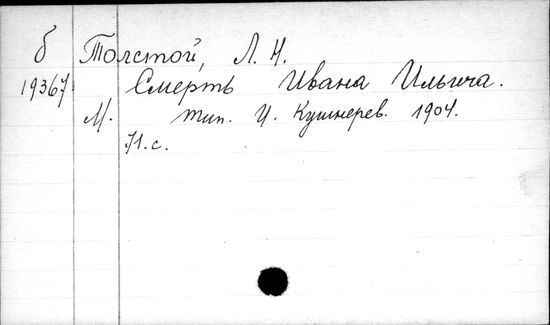 б Толстой, Л. Н.
19367 Смерть Ивана Ильича.
М. тип. И. Кушнерев. 1904.
71. с.